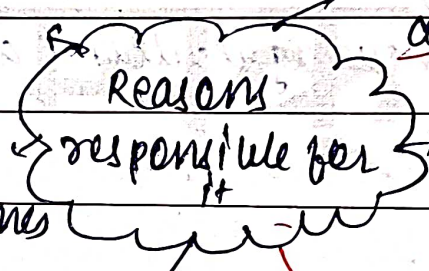 Reasons
responsible for
it